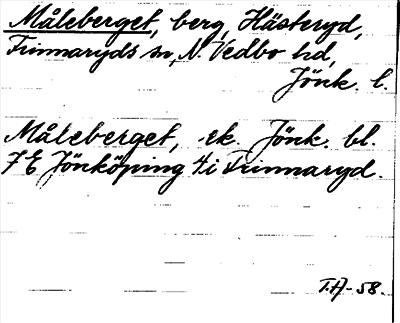 Måleberget, berg, Hästeryd,
Frinnaryds sn, N. Vedbo hd,
Jönk. l.
Måleberget, ek. Jönk. bl.
7E Jönköping 4i Frinnaryd.
T.A-58.